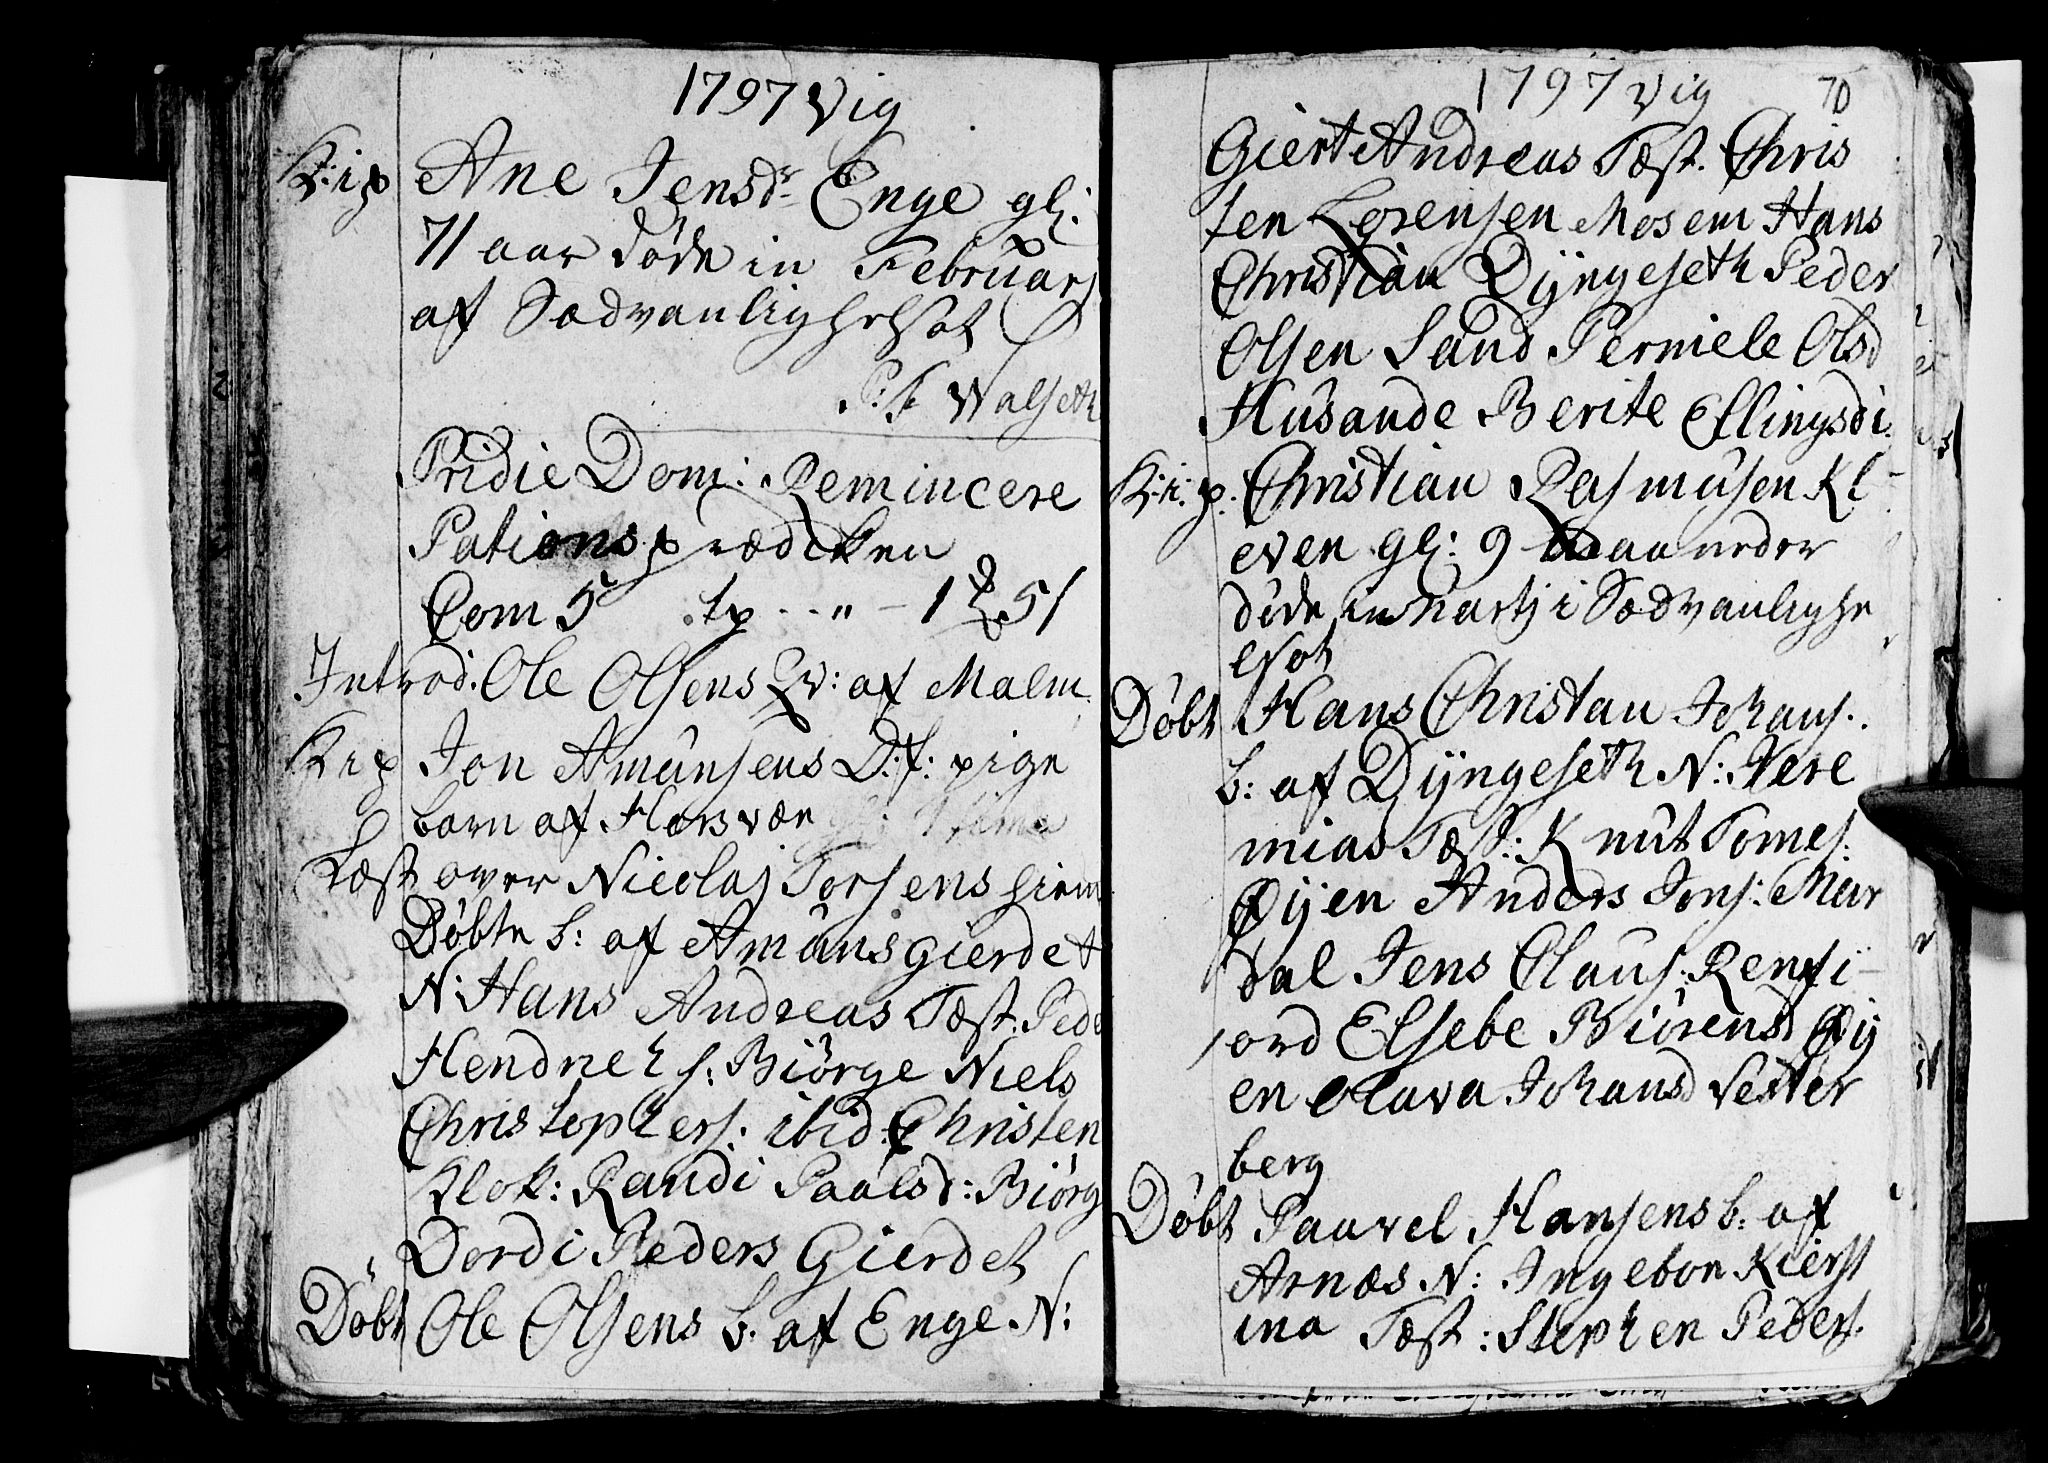 1797 Vig
K: i p Ane Jensdr Enge gl:
71 aar døde in Februarj
af Sædvanlighelsot
P: F Walseth
Pridie Dom: Remincere
Pations prædiken
Com 5 tp - - " - 1 51
Introd. Ole Olsens Qv: af Malm
K i p Jon Amunsens D: f: pige
barn af Horsvær
Læst over Nicolaj Torsens hiem
Døbte b: af Amunsgierdet
N: Hans Andreas Tæst. Peder
Hendrich s: Biørge Niels
Christophers: ibid: Christen
Klok: Randi Paalsd: Biørg
Dordi Peders Gierdet
Døbt Ole Olsens b. af Enge N:
1797 Vig 70
Giert Andreas Tæst. Chris
ten Lorensen Mosem Hans
Christian Dÿngeseth Peder
Olsen Sand Perniele Olsd
Husande Berite Ellingsd:
K: i: p. Christian Rasmusen Kl
even gl: 9 maaneder
døde in Martj i Sædvanlighe
lsot
Døbt Hans Christan Johans.
b: af Dÿngeseth N: Jere
mias Tæst: Knut Tomes:
Øÿen Anders Jons: Mar
dal Jens Claus: Renfi
ord Elsebe Biørensd Øÿ
en Olava Johansd Vester
berg
Døbt Paavel Hansens b. af
Arnæs N: Ingebor Kierst
ina Tæst: Stephen Peders.